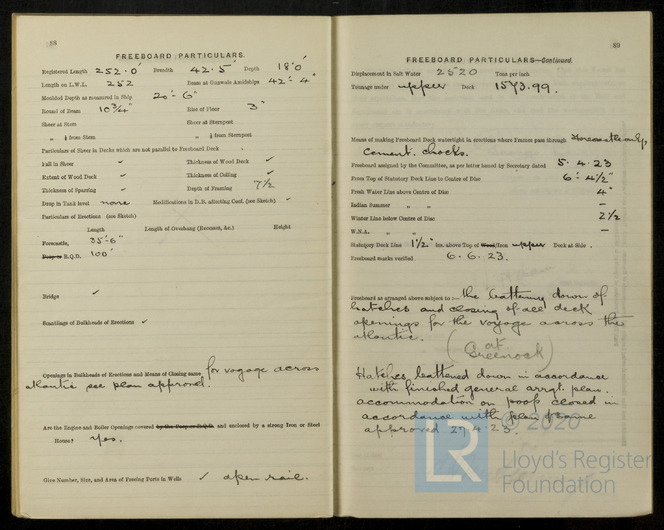 88
FREEBOARD PARTICULARS.
Registered Length 252.0' Breadth 42.5' Depth 18.0'
Length on L.W.L. 252 Beam at Gunwale Amidships 42'-4"
Moulded Depth as measured in Ship 20'-6"
Round of Beam 10¾" Rise of Floor 3"
Sheer at Stem Sheer at Sternpost
" ⅛ from Stem " ⅛ from Sternpost
Particulars of Sheer in Decks which are not parallel to Freeboard Deck
Fall in Sheer ✓ Thickness of Wood Deck ✓
Extent of Wood Deck ✓ Thickness of Ceiling ✓
Thickness of Sparring ✓ Depth of Framing 7½
Drop in Tank level none Modifications in D.B. affecting Coef. (see Sketch) ✓
Particulars of Erections (see Sketch)
Length Length of Overhang (Recesses, &c.) Height
Forecastle, 35'-6"
Poop or R.Q.D. 100'
Bridge ✓
Scantlings of Bulkheads of Erections ✓
Openings in Bulkheads of Erections and Means of Closing same for voyage across
atlantic see plan approved.
Are the Engine and Boiler Openings covered by the Poop or R.Q.D. and enclosed by a strong Iron or Steel
House? yes.
Give Number, Size, and Area of Freeing Ports in Wells ✓ open rail.
89
FREEBOARD PARTICULARS—Continued.
Displacement in Salt Water 2520 Tons per inch
Tonnage under upper Deck 1573.99.
Means of making Freeboard Deck watertight in erections where Frames pass through Forecastle only,
cement chocks.
Freeboard assigned by the Committee, as per letter issued by Secretary dated 5.4.23
From Top of Statutory Deck Line to Centre of Disc 6'-4½"
Fresh Water Line above Centre of Disc 4"
Indian Summer " " –
Winter Line below Centre of Disc 2½
W.N.A. " " –
Statutory Deck Line 1½" ins. above Top of Wood/Iron upper Deck at Side.
Freeboard marks verified 6.6.23.
Freeboard as arranged above subject to :— the battening down of
hatches and closing of all deck
openings for the voyage across the
atlantic.
(at
Greenock)
Hatches battened down in accordance
with finished general arrgt. plan.
accommodation on poop closed in
accordance with plan of same
approved 27.4.23.
LR
© 2020
Lloyd's Register
Foundation